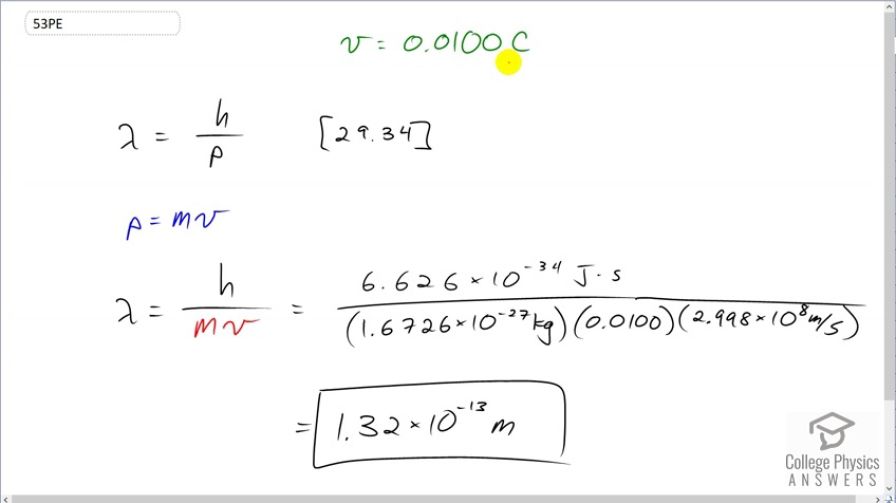 53PE
v = 0.0100 C
λ = h/p [29.34]
p = mv
λ = h/mv = 6.626 × 10⁻³⁴ J·s / (1.6726 × 10⁻²⁷ kg)(0.0100)(2.998 × 10⁸ m/s)
= 1.32 × 10⁻¹³ m
College Physics
ANSWERS